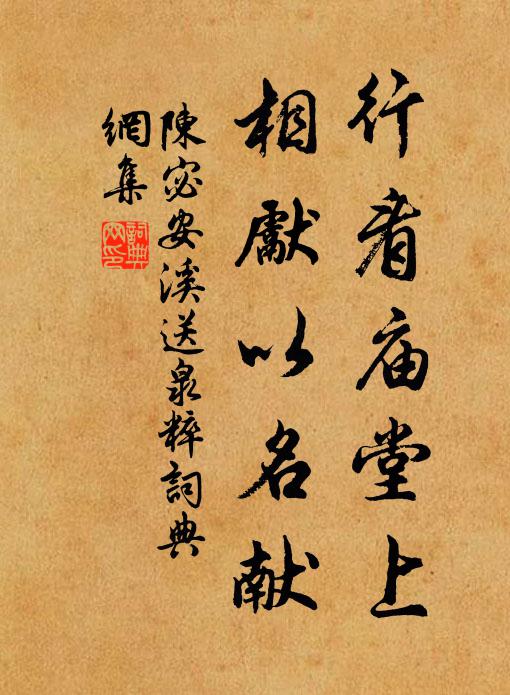 行看庙堂上
相獻以名献
陳宓安溪送泉粹詞典
網集
詞典網印